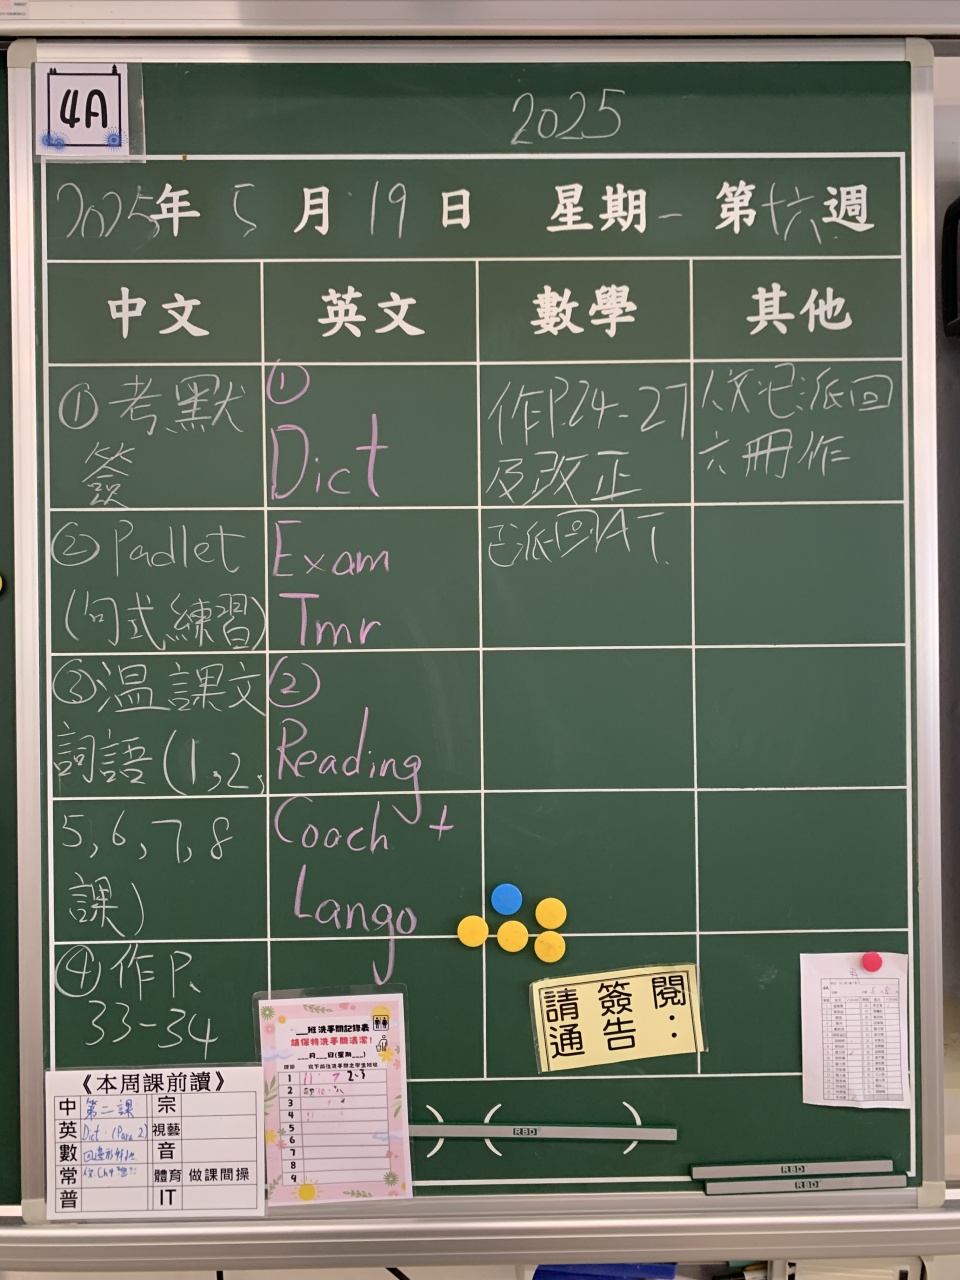 4A
2025
2025年 5月19日 星期一 第十六週
中文
英文
數學
其他
①考默
簽
②Padlet
(句式練習)
③溫課文
詞語(1,2,
5,6,7,8
課)
④作P.
33-34
①
Dict
Exam
Tmr
②
Reading
Coach +
Lango
作P.24-27
及改正
已派回AT.
常已派回
六冊作
請簽閱
通告:
( )
RBD
RBD
RBD
《本周課前讀》
中 第二課 宗
英 Dict. (Para 2) 視藝
數 音
常 體育 做課間操
普 IT
___班洗手間記錄表
請保持洗手間清潔!
___月___日(星期___)
1
2
3
4
5
6
7
8
9